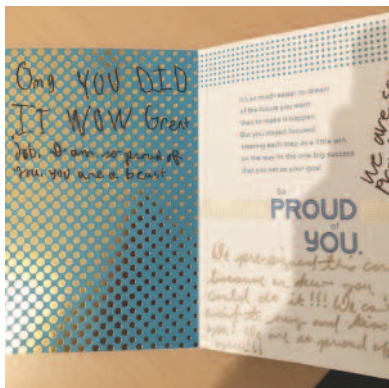 Omg YOU DID
IT WOW Great
Job, I am so proud of
you. you are a beast
It's so much easier to dream
of the future you want
than to make it happen.
But you stayed focused,
treating each step as a little win
on the way to the one big success
that you set as your goal.
So
PROUD
of
YOU.
We are so
We pre-signed this car
because we knew you
could do it!!! We can
wait to hug and
you! We are so proud of
you!!!